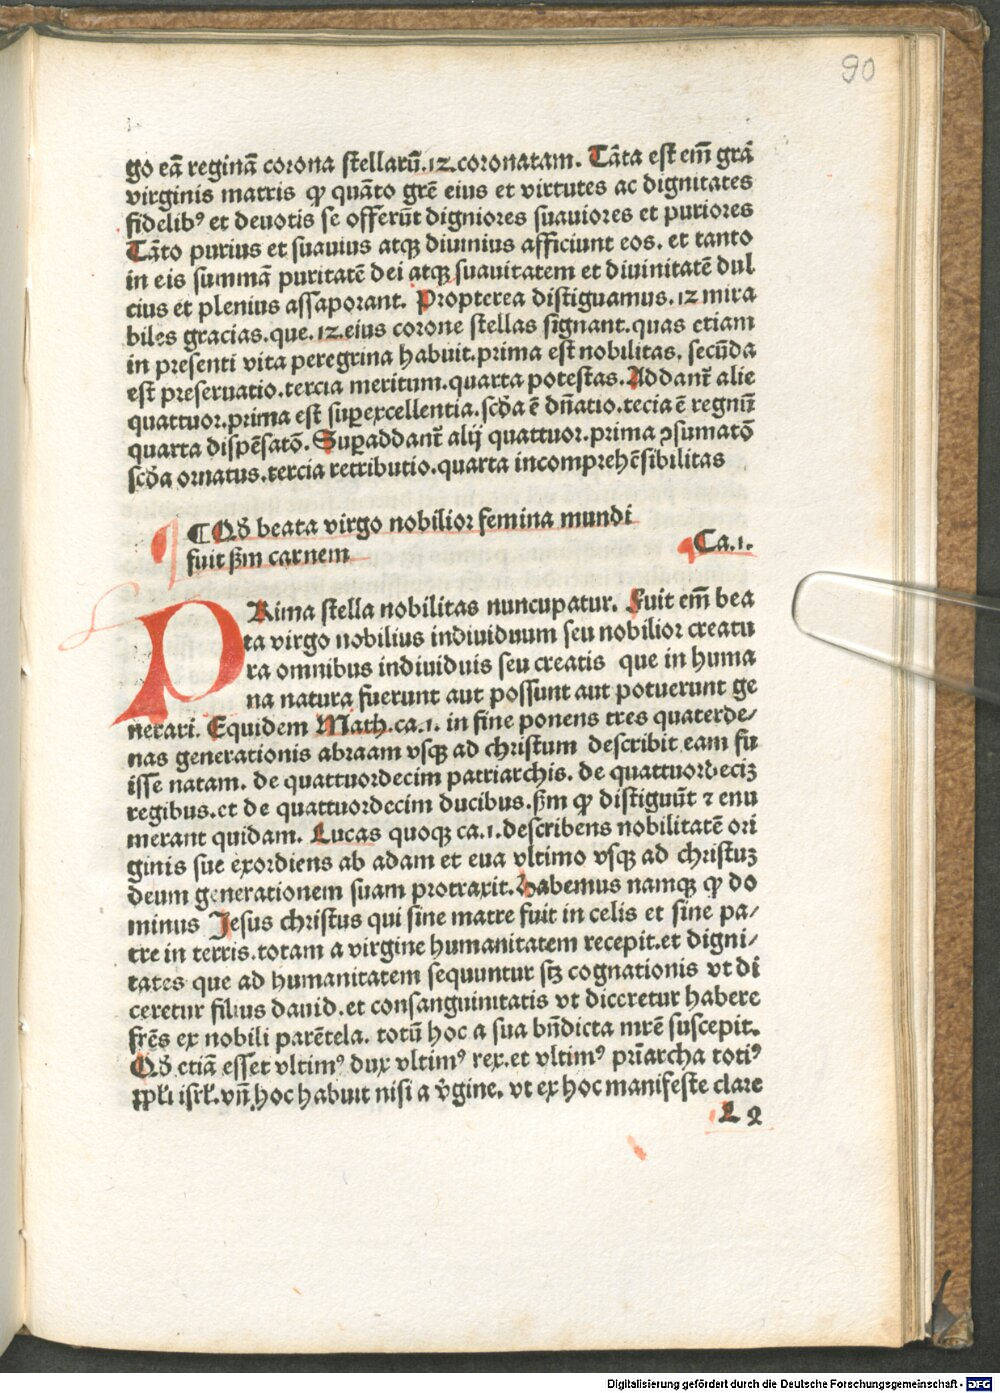 90
go eā reginā corona stellarū.12.coronatam. Tāta est em̄ grā
virginis matris ꝙ quāto grē eius et virtutes ac dignitates
fidelibꝰ et deuotis se offerūt digniores suauiores et puriores
Tāto purius et suauius atqꝫ diuinius afficiunt eos. et tanto
in eis summā puritatē dei atqꝫ suauitatem et diuinitatē dul
cius et plenius assaporant. Propterea distiguamus.12 mira
biles gracias.que.12.eius corone stellas signant.quas etiam
in presenti vita peregrina habuit.prima est nobilitas. secūda
est preseruatio.tercia meritum.quarta potestas. Addant᷑ alie
quattuor.prima est suꝑexcellentia.scd̄a ē dn̄atio.tecia ē regnū
quarta dispēsatō. Suꝑaddant᷑ alij quattuor.prima ꝯsumatō
scd̄a ornatus.tercia retributio.quarta incomprehēsibilitas
¶ Qd̄ beata virgo nobilior femina mundi
fuit ßm carnem
Ca.1.
PRima stella nobilitas nuncupatur. Fuit em̄ bea
ta virgo nobilius indiuiduum seu nobilior creatu
ra omnibus indiuiduis seu creatis que in huma
na natura fuerunt aut possunt aut potuerunt ge
nerari. Equidem Math.ca.1. in fine ponens tres quaterde⸗
nas generationis abraam vsqꝫ ad christum describit eam fu
isse natam. de quattuordecim patriarchis. de quattuordeciꝫ
regibus.et de quattuordecim ducibus.ßm ꝙ distiguūt ⁊ enu
merant quidam. Lucas quoqꝫ ca.1.describens nobilitatē ori
ginis sue exordiens ab adam et eua vltimo vsqꝫ ad christuꝫ
deum generationem suam protraxit. Habemus namqꝫ ꝙ do
minus Jesus christus qui sine matre fuit in celis et sine pa⸗
tre in terris.totam a virgine humanitatem recepit.et digni⸗
tates que ad humanitatem sequuntur sꝫ cognationis vt di
ceretur filius dauid.et consanguinitatis vt diceretur habere
fr̄es ex nobili parētela. totū hoc a sua bn̄dicta mr̄e suscepit.
Qd̄ etiā esset vltimꝰ dux vltimꝰ rex.et vltimꝰ pr̄iarcha totiꝰ
ppl̄i isrl̄.vn̄ hoc habuit nisi a v̄gine. vt ex hoc manifeste clare
L 2
Digitalisierung gefördert durch die Deutsche Forschungsgemeinschaft - DFG